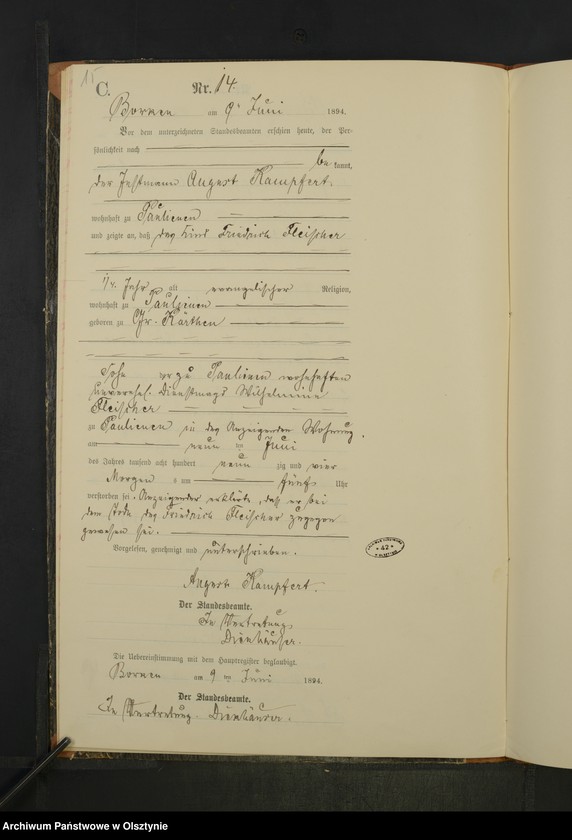 15
C.
Nr. 14.
Bornen am 9. Juni 1894.
Vor dem unterzeichneten Standesbeamten erschien heute, der Per-
sönlichkeit nach
be kannt,
der Instmann August Kampfert,
wohnhaft zu Paulienen
und zeigte an, daß das Kind Friedrich Fleischer
1/4 Jahr alt evangelischer Religion,
wohnhaft zu Paulienen
geboren zu Gr. Kärthen
Sohn der zu Paulienen wohnhaften
unverehel. Dienstmagd Wilhelmine
Fleischer
zu Paulienen in des Anzeigenden Wohnung,
am neun ten Juni
des Jahres tausend acht hundert neun zig und vier
Morgens um fünf Uhr
verstorben sei. Anzeigender erklärte, daß er bei
dem Tode des Friedrich Fleischer zugegen
gewesen sei.
Vorgelesen, genehmigt und unterschrieben.
August Kampfert.
Der Standesbeamte.
In Vertretung
Die Uebereinstimmung mit dem Hauptregister beglaubigt.
Bornen am 9 ten Juni 1894.
Der Standesbeamte.
In Vertretung.
* 42 *
Archiwum Państwowe w Olsztynie